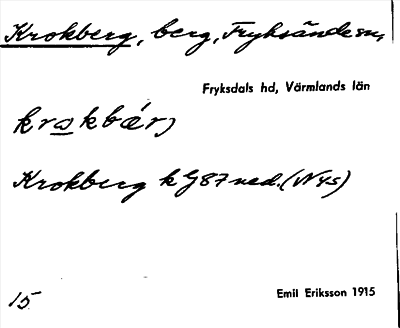 Krokberg, berg, Fryksände sn,
Fryksdals hd, Värmlands län
Krokberg k G87 ned. (N45)
15
Emil Eriksson 1915